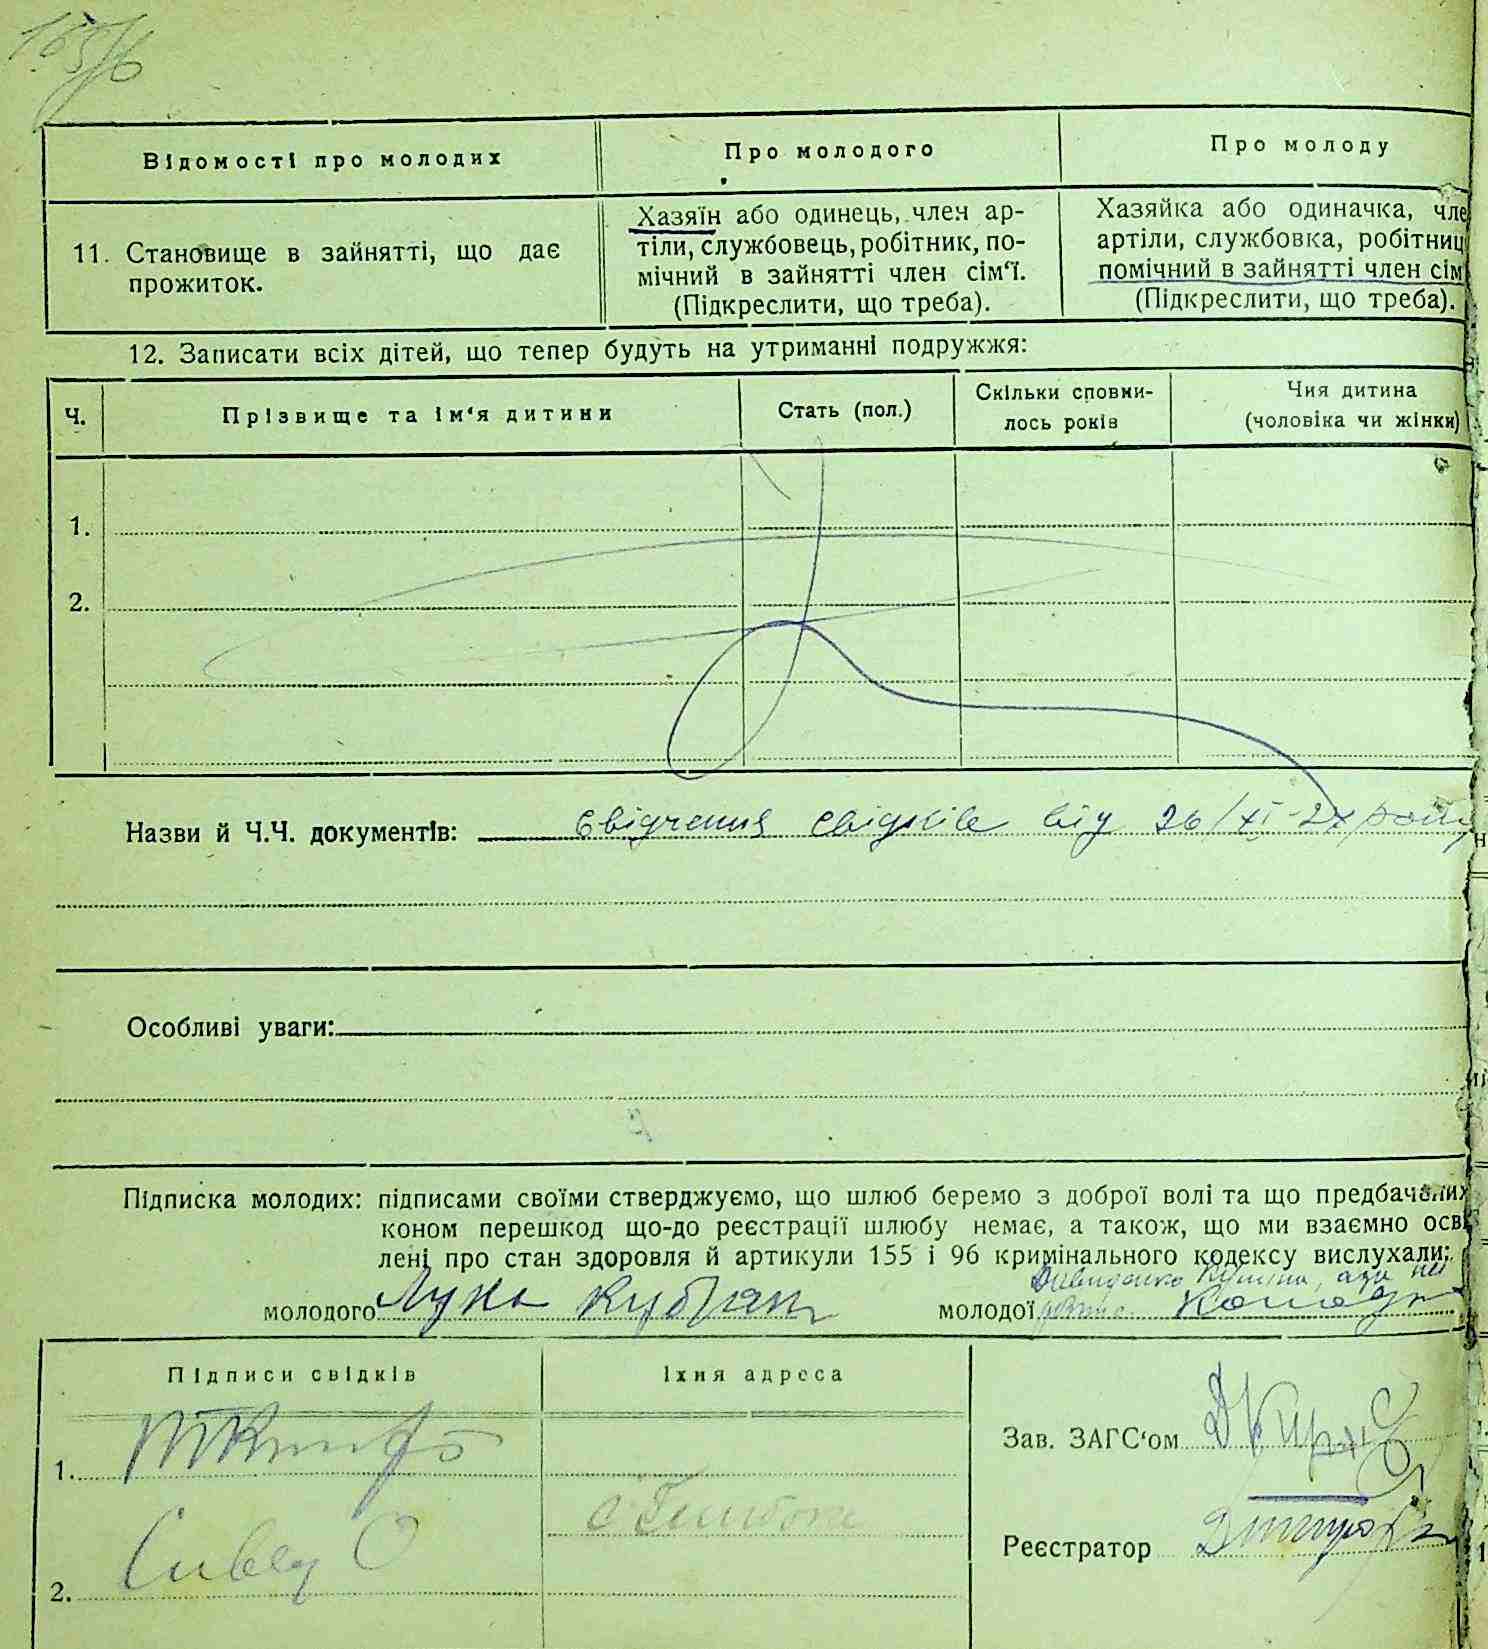 Відомості про молодих
Про молодого
Про молоду
11. Становище в зайнятті, що дає
прожиток.
Хазяїн або одинець, член ар-
тіли, службовець, робітник, по-
мічний в зайнятті член сім'ї.
(Підкреслити, що треба).
Хазяйка або одиначка, чле
артіли, службовка, робітниц
помічний в зайнятті член сім
(Підкреслити, що треба).
12. Записати всіх дітей, що тепер будуть на утриманні подружжя:
Ч.
Прізвище та ім'я дитини
Стать (пол.)
Скільки сповни-
лось років
Чия дитина
(чоловіка чи жінки)
1.
2.
Назви й Ч.Ч. документів: свідчення свідків від 26/XI-27 року
Особливі уваги:
Підписка молодих: підписами своїми стверджуємо, що шлюб беремо з доброї волі та що предбачених
коном перешкод що-до реєстрації шлюбу немає, а також, що ми взаємно осві
лені про стан здоровля й артикули 155 і 96 кримінального кодексу вислухали:
молодого Лука
молодої
Підписи свідків
Їхня адреса
1.
2. Сивец О
Зав. ЗАГС'ом
Реєстратор